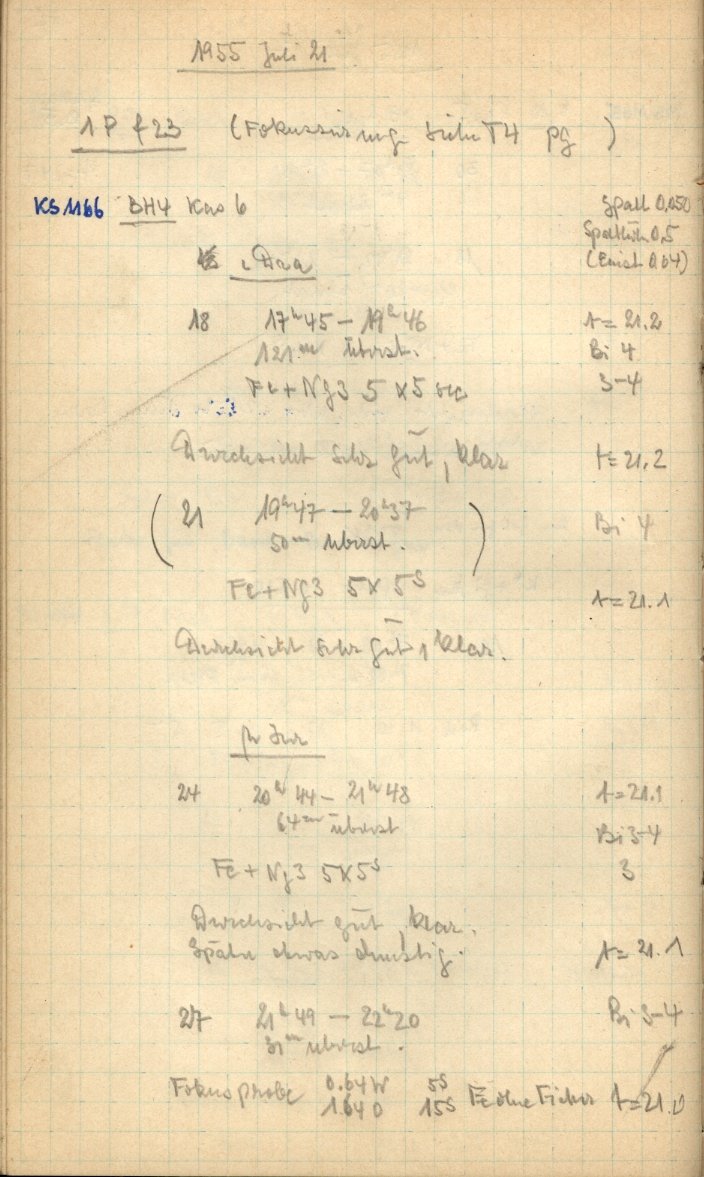 1955 Juli 21
1P f23 (Fokussierung siehe T4 pg )
KS 1166 BH4 Kas 6 Spalt 0,050
Spalthöh 0,5
ι Dra (Einst. 0.04)
18 17h45 – 19h46 t = 21.2
121m überst. Bi 4
Fe + Ng3 5 x 5 sec 3-4
Durchsicht sehr gut, klar t = 21.2
( 21 19h47 – 20h37 ) Bi 4
50m überst.
Fe + Ng3 5 x 5s t = 21.1
Durchsicht sehr gut, klar.
24 20h44 – 21h48 t = 21.1
64m überst Bi 3-4
Fe + Ng3 5x5s 3
Durchsicht gut, klar.
Später etwas dunstig. t = 21.1
27 21h49 – 22h20 Bi 3-4
31m überst.
Fokusprobe 0.64W 5s Fe ohne Filter t = 21.0
1.64 0 15s